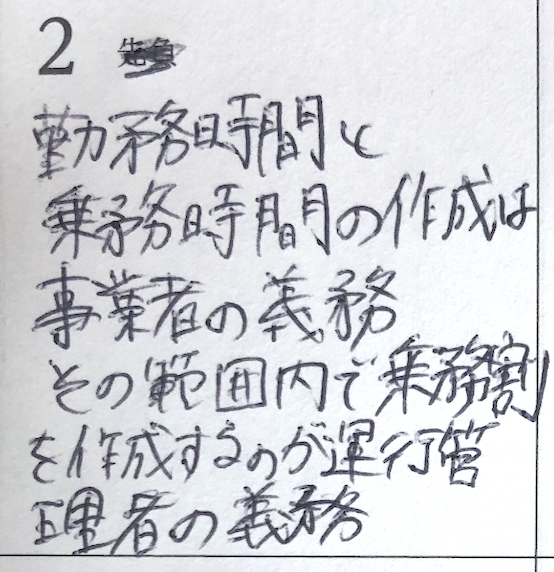 2 先負
勤務時間と
乗務時間の作成は
事業者の義務
その範囲内で乗務割
を作成するのが運行管
理者の義務